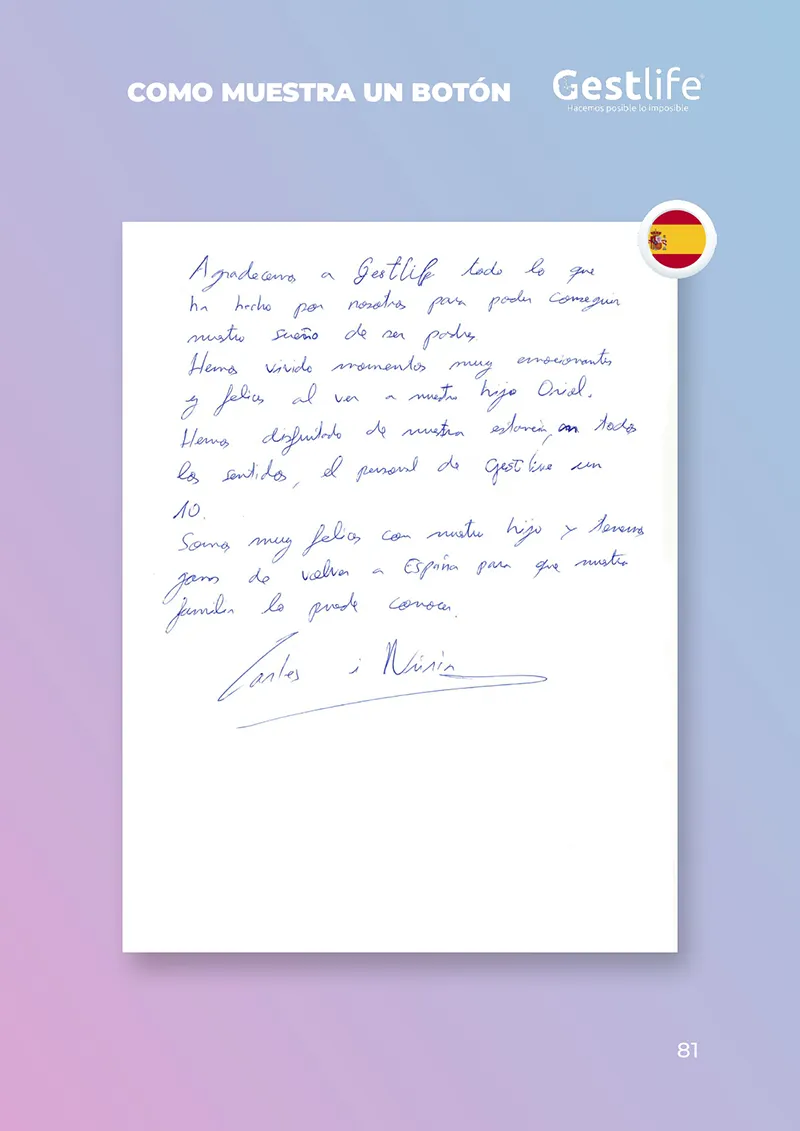 COMO MUESTRA UN BOTÓN
Gestlife
Hacemos posible lo imposible
Agradecemos a Gestlife todo lo que
ha hecho por nosotros para poder conseguir
nuestro sueño de ser padres.
Hemos vivido momentos muy emocionantes
y felices al ver a nuestro hijo Oriol.
Hemos disfrutado de nuestra estancia, en todos
los sentidos, el personal de Gestlife un
10.
Somos muy felices con nuestro hijo y tenemos
ganas de volver a España para que nuestra
familia lo puede conocer.
Carles i Núria
81